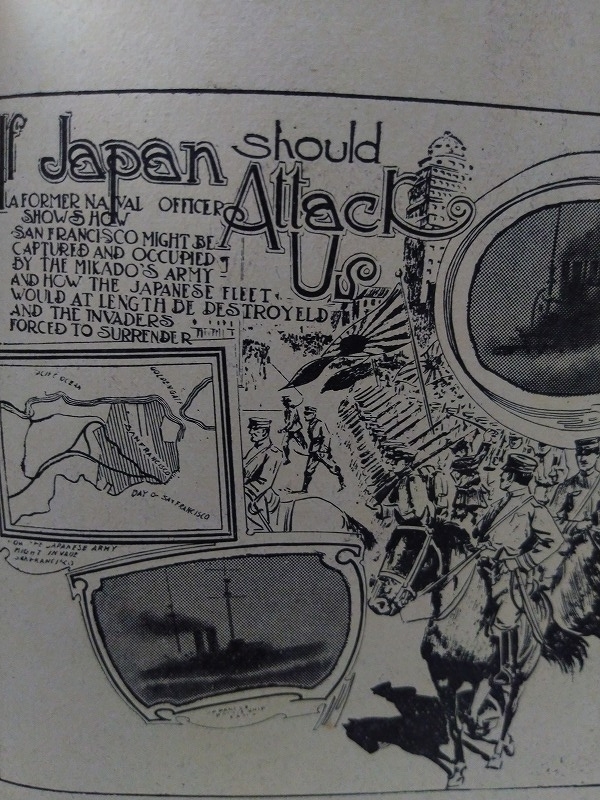 If Japan should
Attack
Us
A FORMER NAVAL OFFICER
SHOWS HOW
SAN FRANCISCO MIGHT BE
CAPTURED AND OCCUPIED
BY THE MIKADO'S ARMY
AND HOW THE JAPANESE FLEET
WOULD AT LENGTH BE DESTROYELD
AND THE INVADERS
FORCED TO SURRENDER
GOLDEN GATE
SAN FRANCISCO
BAY OF SAN FRANCISCO
JAPANESE ARMY
MIGHT INVADE
SAN FRANCISCO